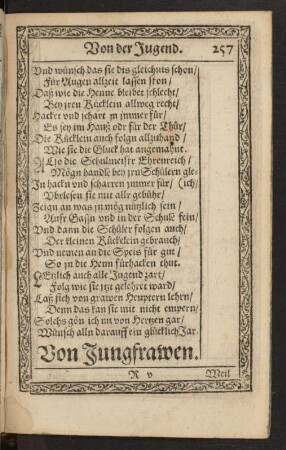 Von der Jugend. 257
Vnd wünsch das sie dis gleichnis schon/
Für Augen allzeit lassen ston/
Daß wie die Henne bleibet schlecht/
Bey jren Kücklein allweg recht/
Hacket vnd schart jn jmmer für/
Es sey im Hauß odr für der Thür/
Die Kücklein auch folgn allzuhand/
Wie sie die Gluck hat angemahnt.
Also die Schulmeistr Ehrenreich/
Mögn handle bey jrn Schülern gle-
Jn hackn vnd scharren jmmer für/ (ich/
Vorlesen sie mit allr gebühr/
Zeign an was jn mög nützlich sein/
Auff Gassn vnd in der Schule fein/
Vnd dann die Schüler folgen auch/
Der kleinen Kückelein gebrauch/
Vnd nemen an die Speis für gut/
So jn die Henn fürhalten thut.
Letzlich auch alle Jugend zart/
Folg wie sie jtzt gelehret ward/
Laß sich von grawen Heuptern lehrn/
Denn das kan sie mit nicht empern/
Solchs gön ich nn von Hertzen gar/
Wünsch alln darauff ein glücklich Jar.
Von Jungfrawen.
R v Weil